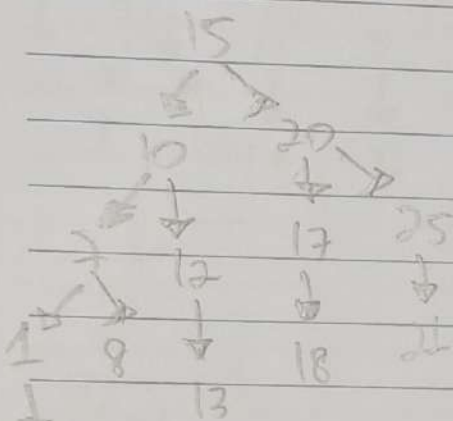 15
10 20
7 12 17 25
1 8 18 21
1 13